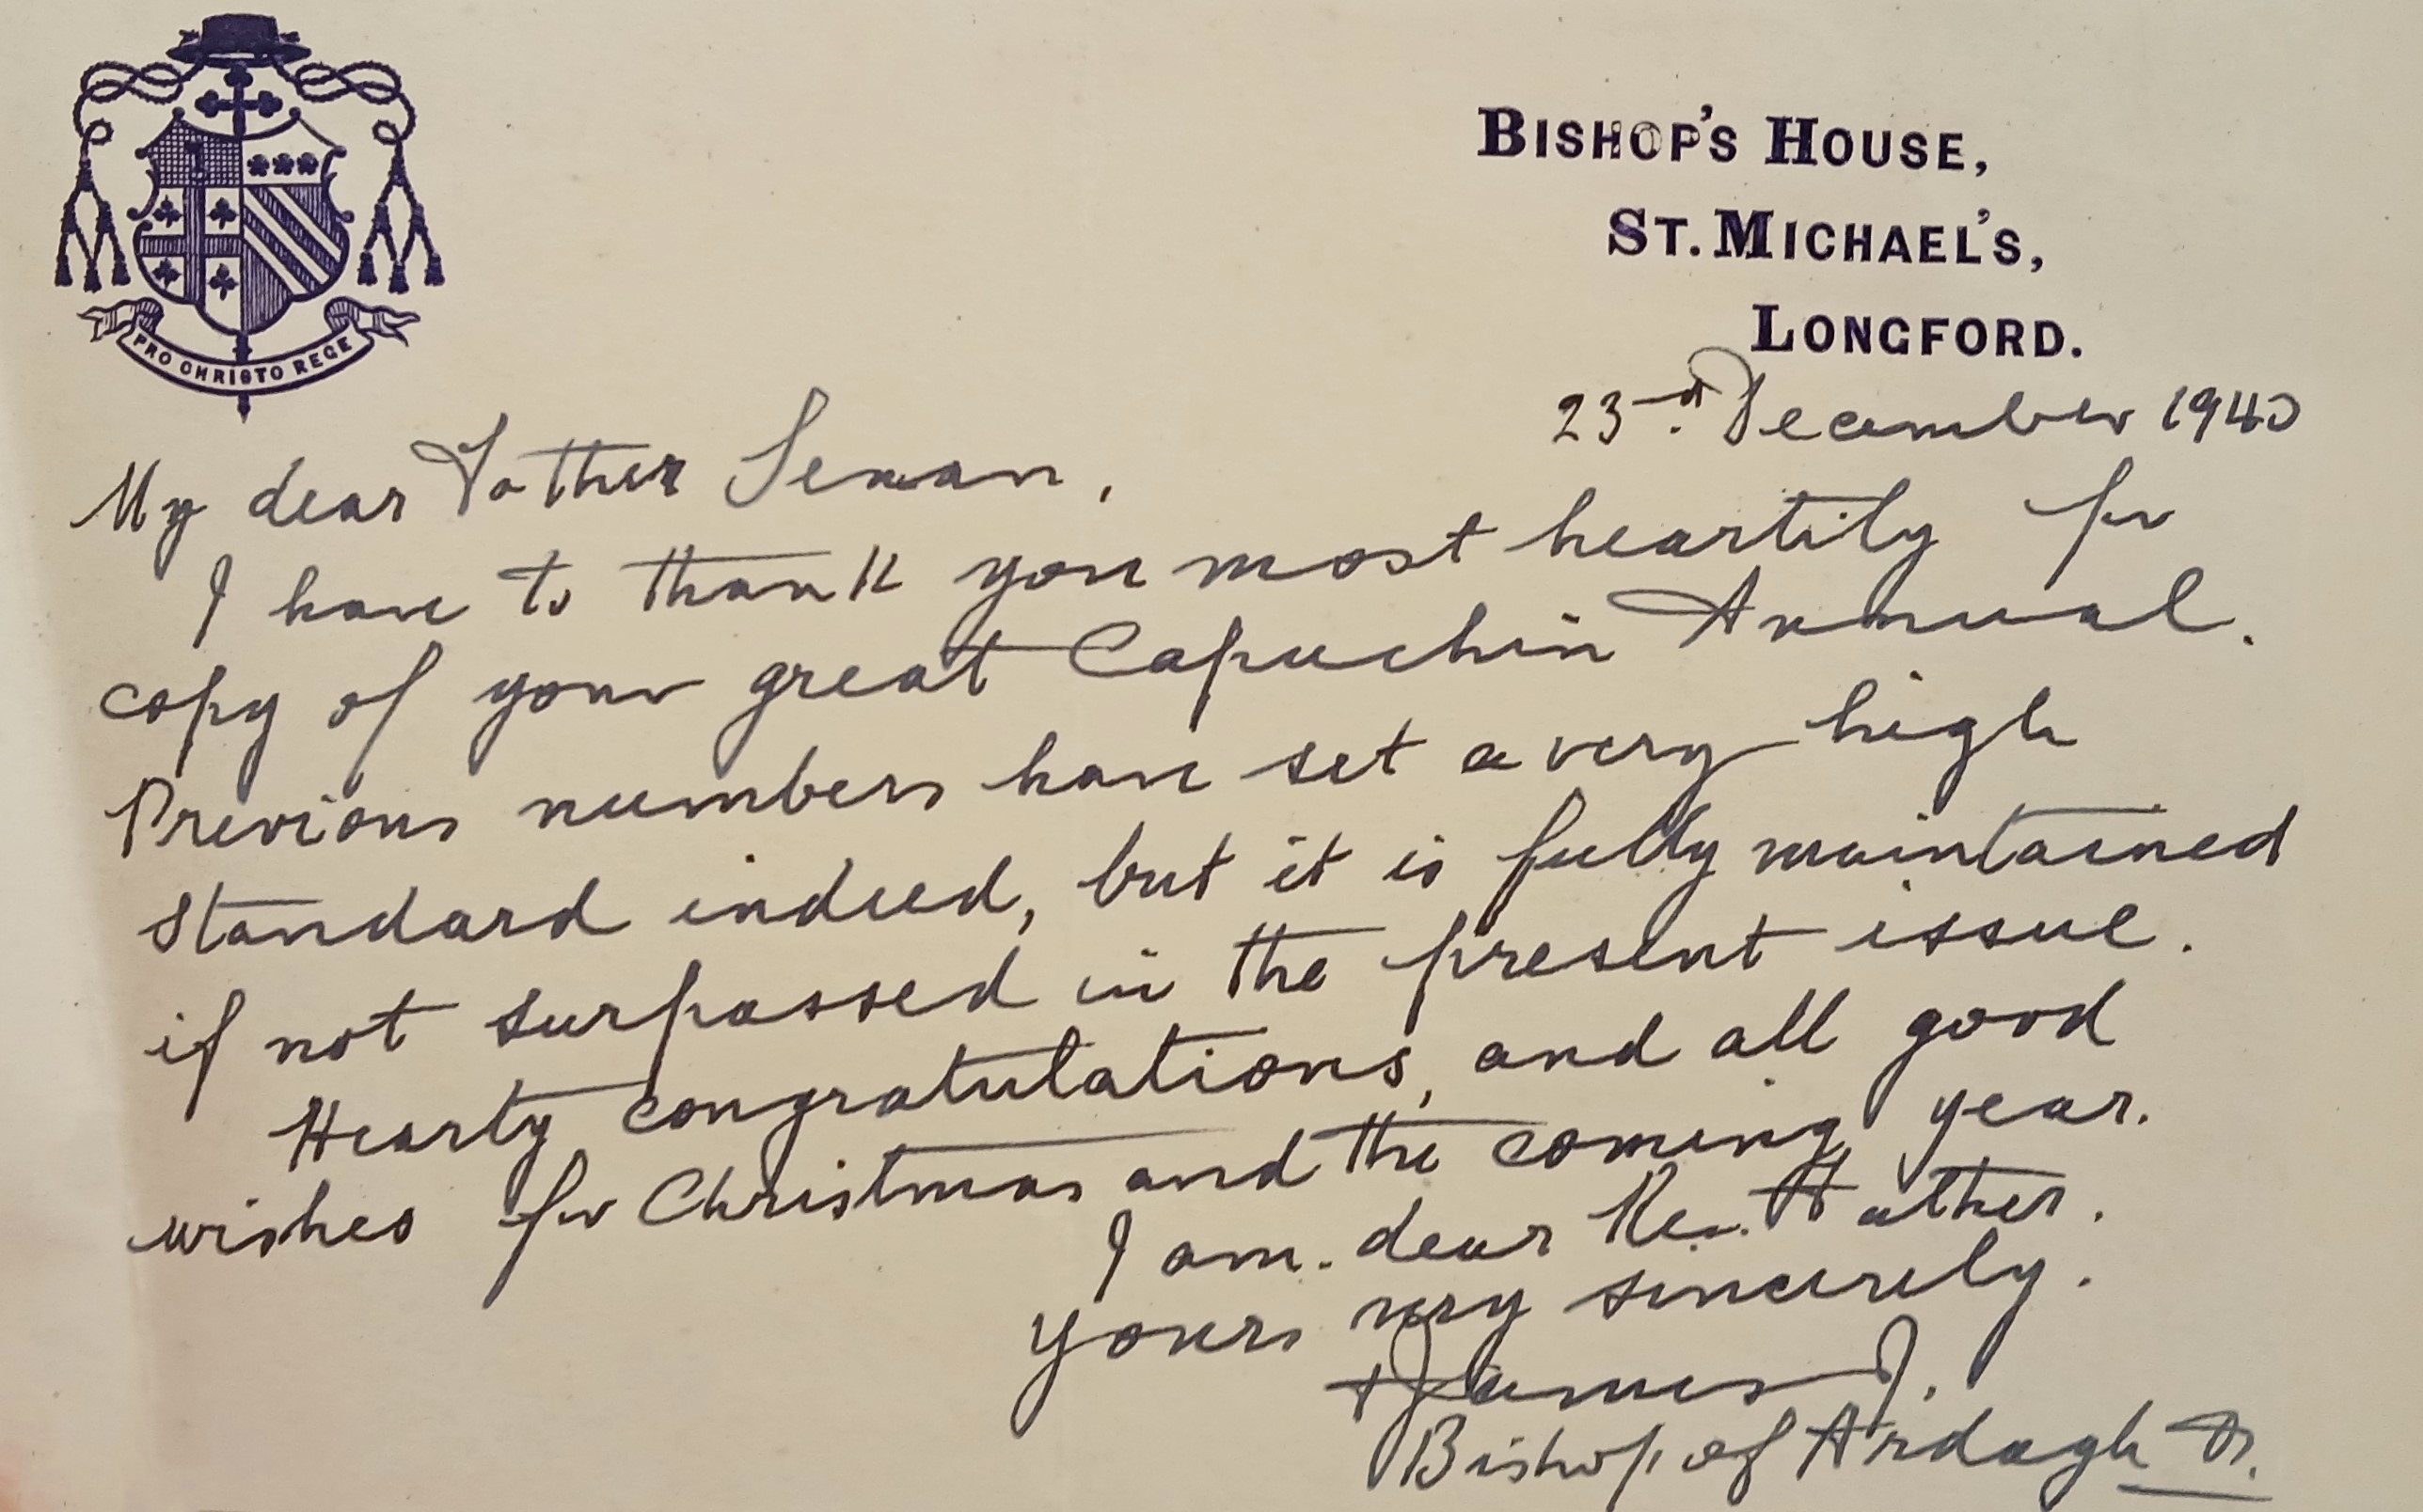 PRO CHRISTO REGE
BISHOP'S HOUSE,
ST. MICHAEL'S,
LONGFORD.
23rd December 1940
My dear Father Senan,
I have to thank you most heartily for
copy of your great Capuchin Annual.
Previous numbers have set a very high
standard indeed, but it is fully maintained
if not surpassed in the present issue.
Hearty congratulations, and all good
wishes for Christmas and the coming year.
I am. dear Rev. Father.
yours very sincerely.
+ James J.
Bishop of Ardagh &.